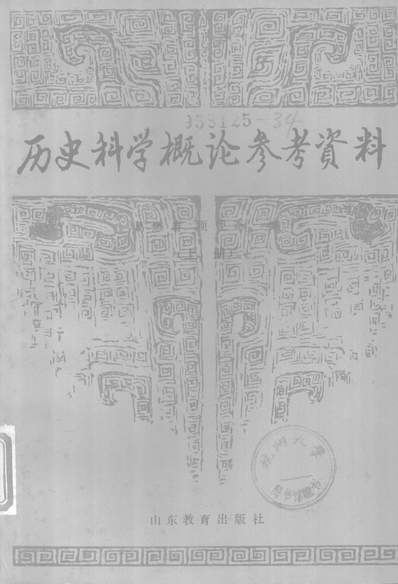 953125-34
历史科学概论参考資料
(上册)
山东教育出版社